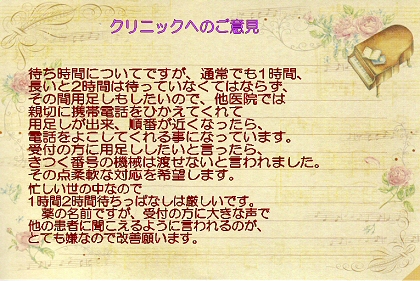 クリニックへのご意見
待ち時間についてですが、通常でも1時間、
長いと2時間は待っていなくてはならず、
その間用足しもしたいので、他医院では
親切に携帯電話をひかえてくれて
用足しが出来、順番が近くなったら、
電話をよこしてくれる事になっています。
受付の方に用足ししたいと言ったら、
きつく番号の機械は渡せないと言われました。
その点柔軟な対応を希望します。
忙しい世の中なので
1時間2時間待ちっぱなしは厳しいです。
　薬の名前ですが、受付の方に大きな声で
他の患者に聞こえるように言われるのが、
とても嫌なので改善願います。